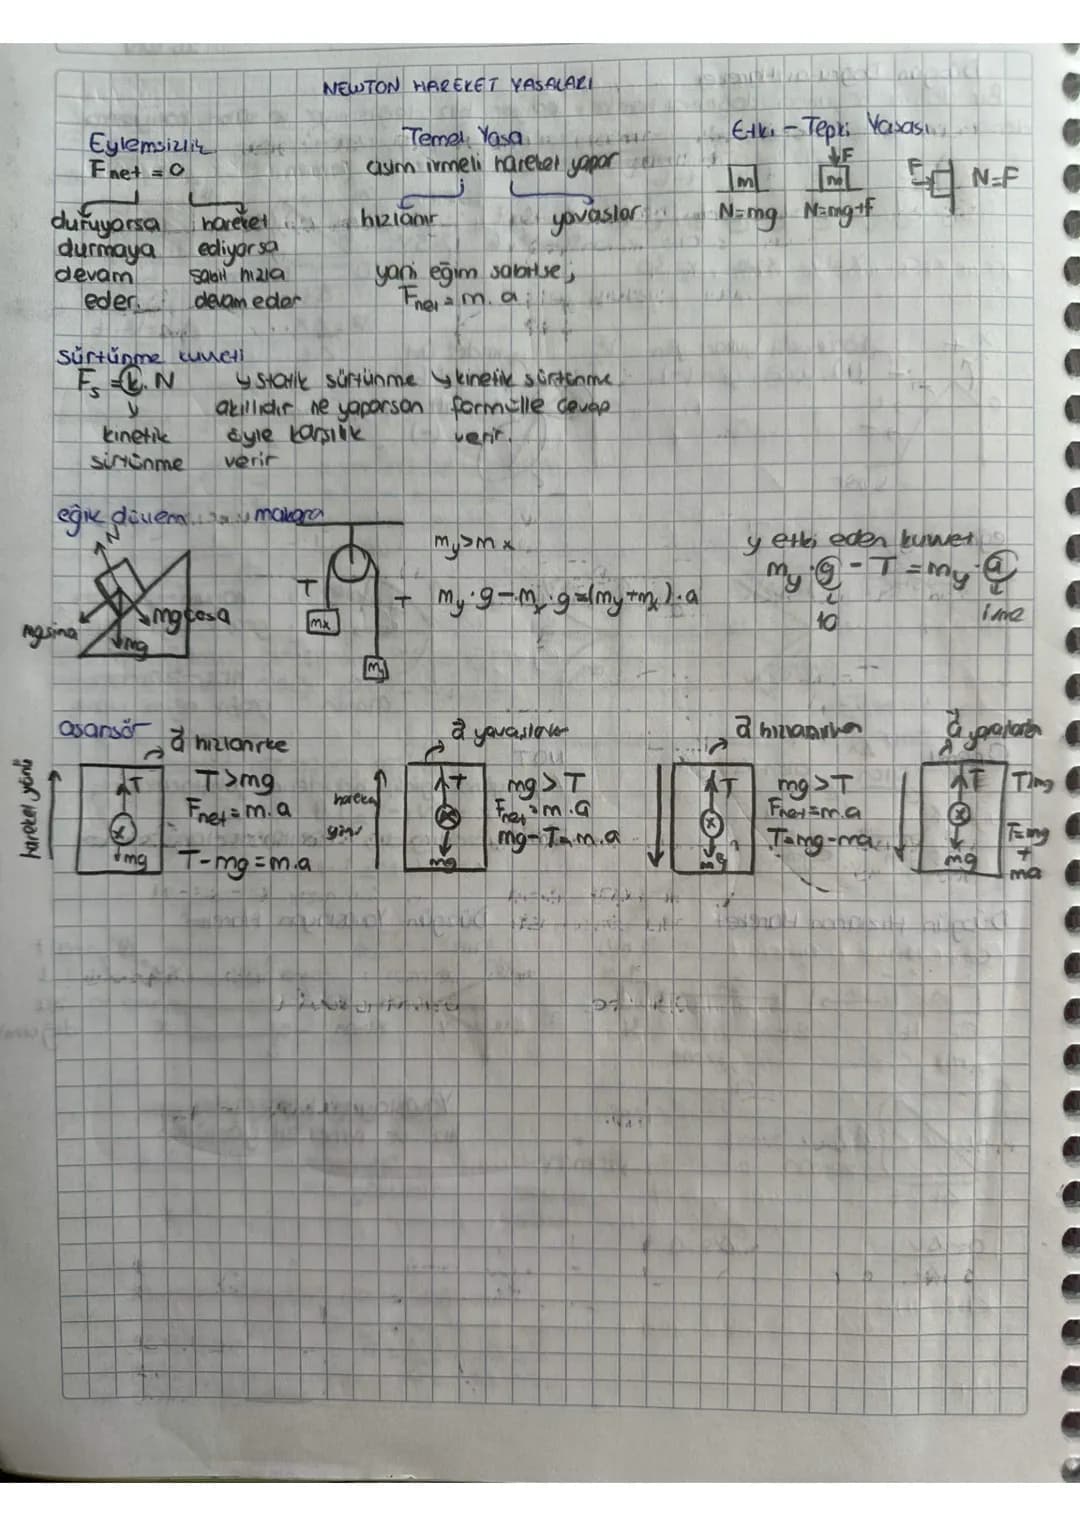 NEWTON HAREKET YASALARI
Eylemsizlik
Fnet = 0
duruyorsa
durmaya
devam
eder.
hareket
ediyorsa
sabit hızla
devam eder
Temel Yasa
ivmeli hareket yapar
hızlanır
yavaşlar
yani eğim sabitse,
Fnet = m.a
Etki - Tepki Yasası
F
m
N=mg
m
N=mg+F
F
N=F
sürtünme kuvveti
Fs = k.N
kinetik
sürtünme
↳ statik sürtünme
akıllıdır ne yaparsan
öyle karşılık
verir
↳ kinetik sürtünme
formülle cevap
verir.
eğik düzlem
N
mgsina
mg
mgcosa
makara
T
mx
my
my>mx
my.g-mx.g=(my+mx).a
y etki eden kuvvet
my.g - T = my.a
10
ivme
asansör
hareket yönü
a hızlanırken
T
mg
T>mg
Fnet=m.a
T-mg=m.a
hareket
yönü
a yavaşlarken
T
mg
mg>T
Fnet=m.a
mg-T=m.a
a hızlanırken
T
mg
mg>T
Fnet=m.a
T=mg-ma
a yavaşlarken
T
mg
T>mg
T=mg
+
ma